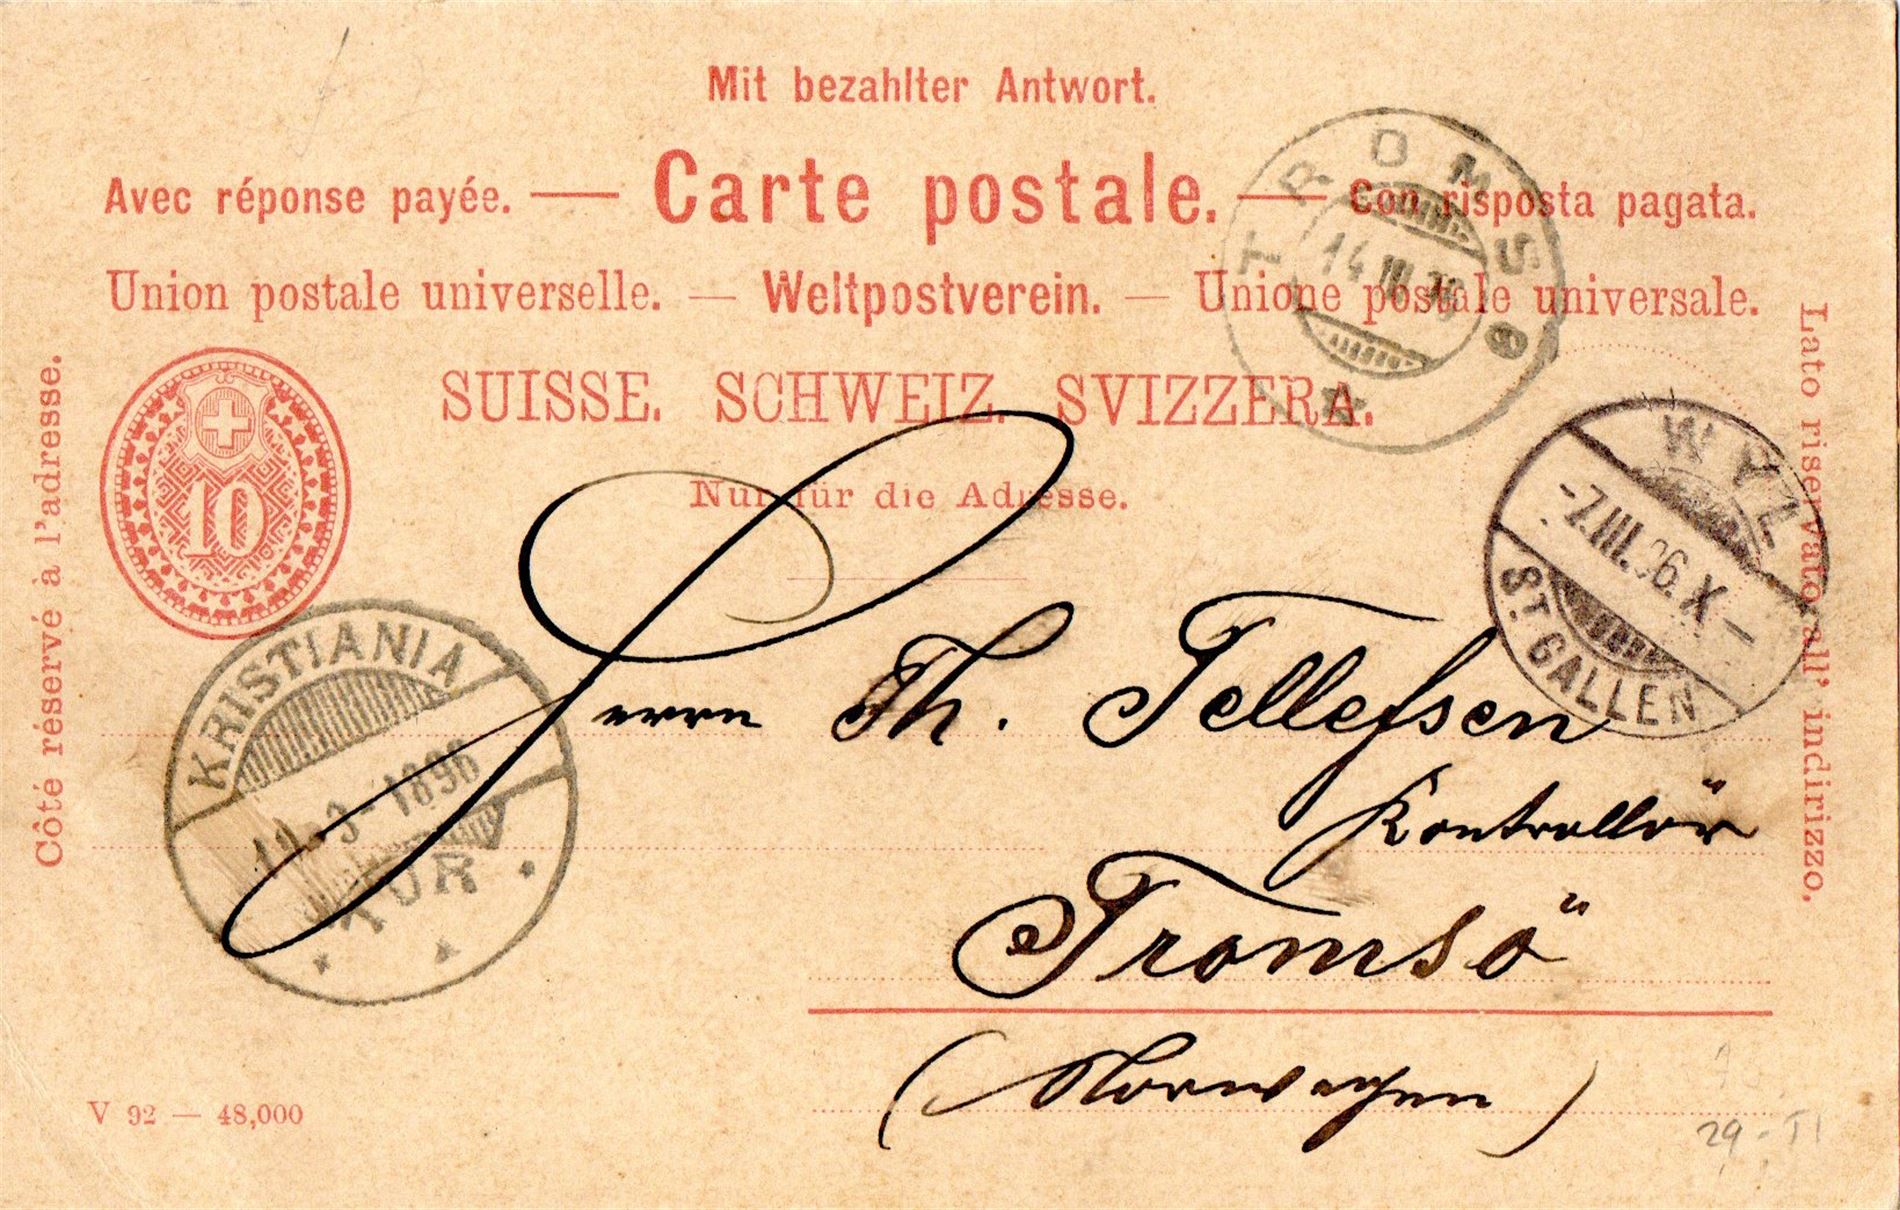 Mit bezahlter Antwort.
Avec réponse payée. — Carte postale. — Con risposta pagata.
Union postale universelle. — Weltpostverein. — Unione postale universale.
SUISSE. SCHWEIZ. SVIZZERA.
Nur für die Adresse.
10
Côté réservé à l'adresse.
Lato riservato all' indirizzo.
TROMSØ
14 III 96
WYL
-7.III.96.X-
ST. GALLEN
KRISTIANIA
3-1896
TUR
Herrn Th. Tellefsen
Kontrollör
Tromsö
(Norwegen)
V 92 — 48,000
29.